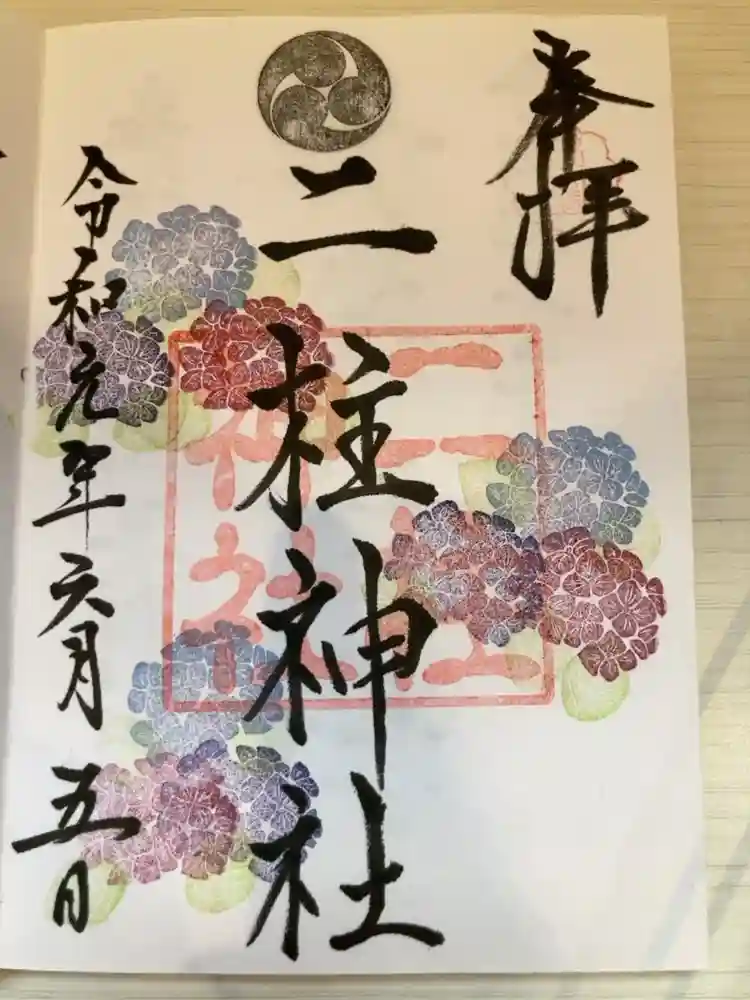 奉拝
二柱神社
二柱
神社
令和元年六月五日